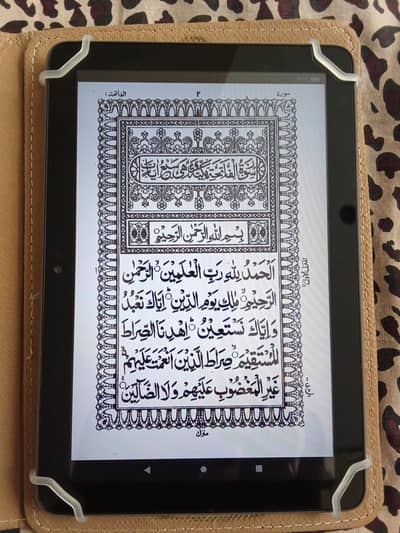 سورة ٢ الفاتحة ١
سُوْرَةُ الْفَاتِحَةِ مَكِّيَّةٌ وَّهِيَ سَبْعُ اٰيَاتٍ
بِسْمِ اللّٰهِ الرَّحْمٰنِ الرَّحِيْمِ
اَلْحَمْدُ لِلّٰهِ رَبِّ الْعٰلَمِيْنَ الرَّحْمٰنِ
الرَّحِيْمِ مٰلِكِ يَوْمِ الدِّيْنِ اِيَّاكَ نَعْبُدُ
وَاِيَّاكَ نَسْتَعِيْنُ اِهْدِنَا الصِّرَاطَ
الْمُسْتَقِيْمَ صِرَاطَ الَّذِيْنَ اَنْعَمْتَ عَلَيْهِمْ
غَيْرِ الْمَغْضُوْبِ عَلَيْهِمْ وَلَا الضَّآلِّيْنَ